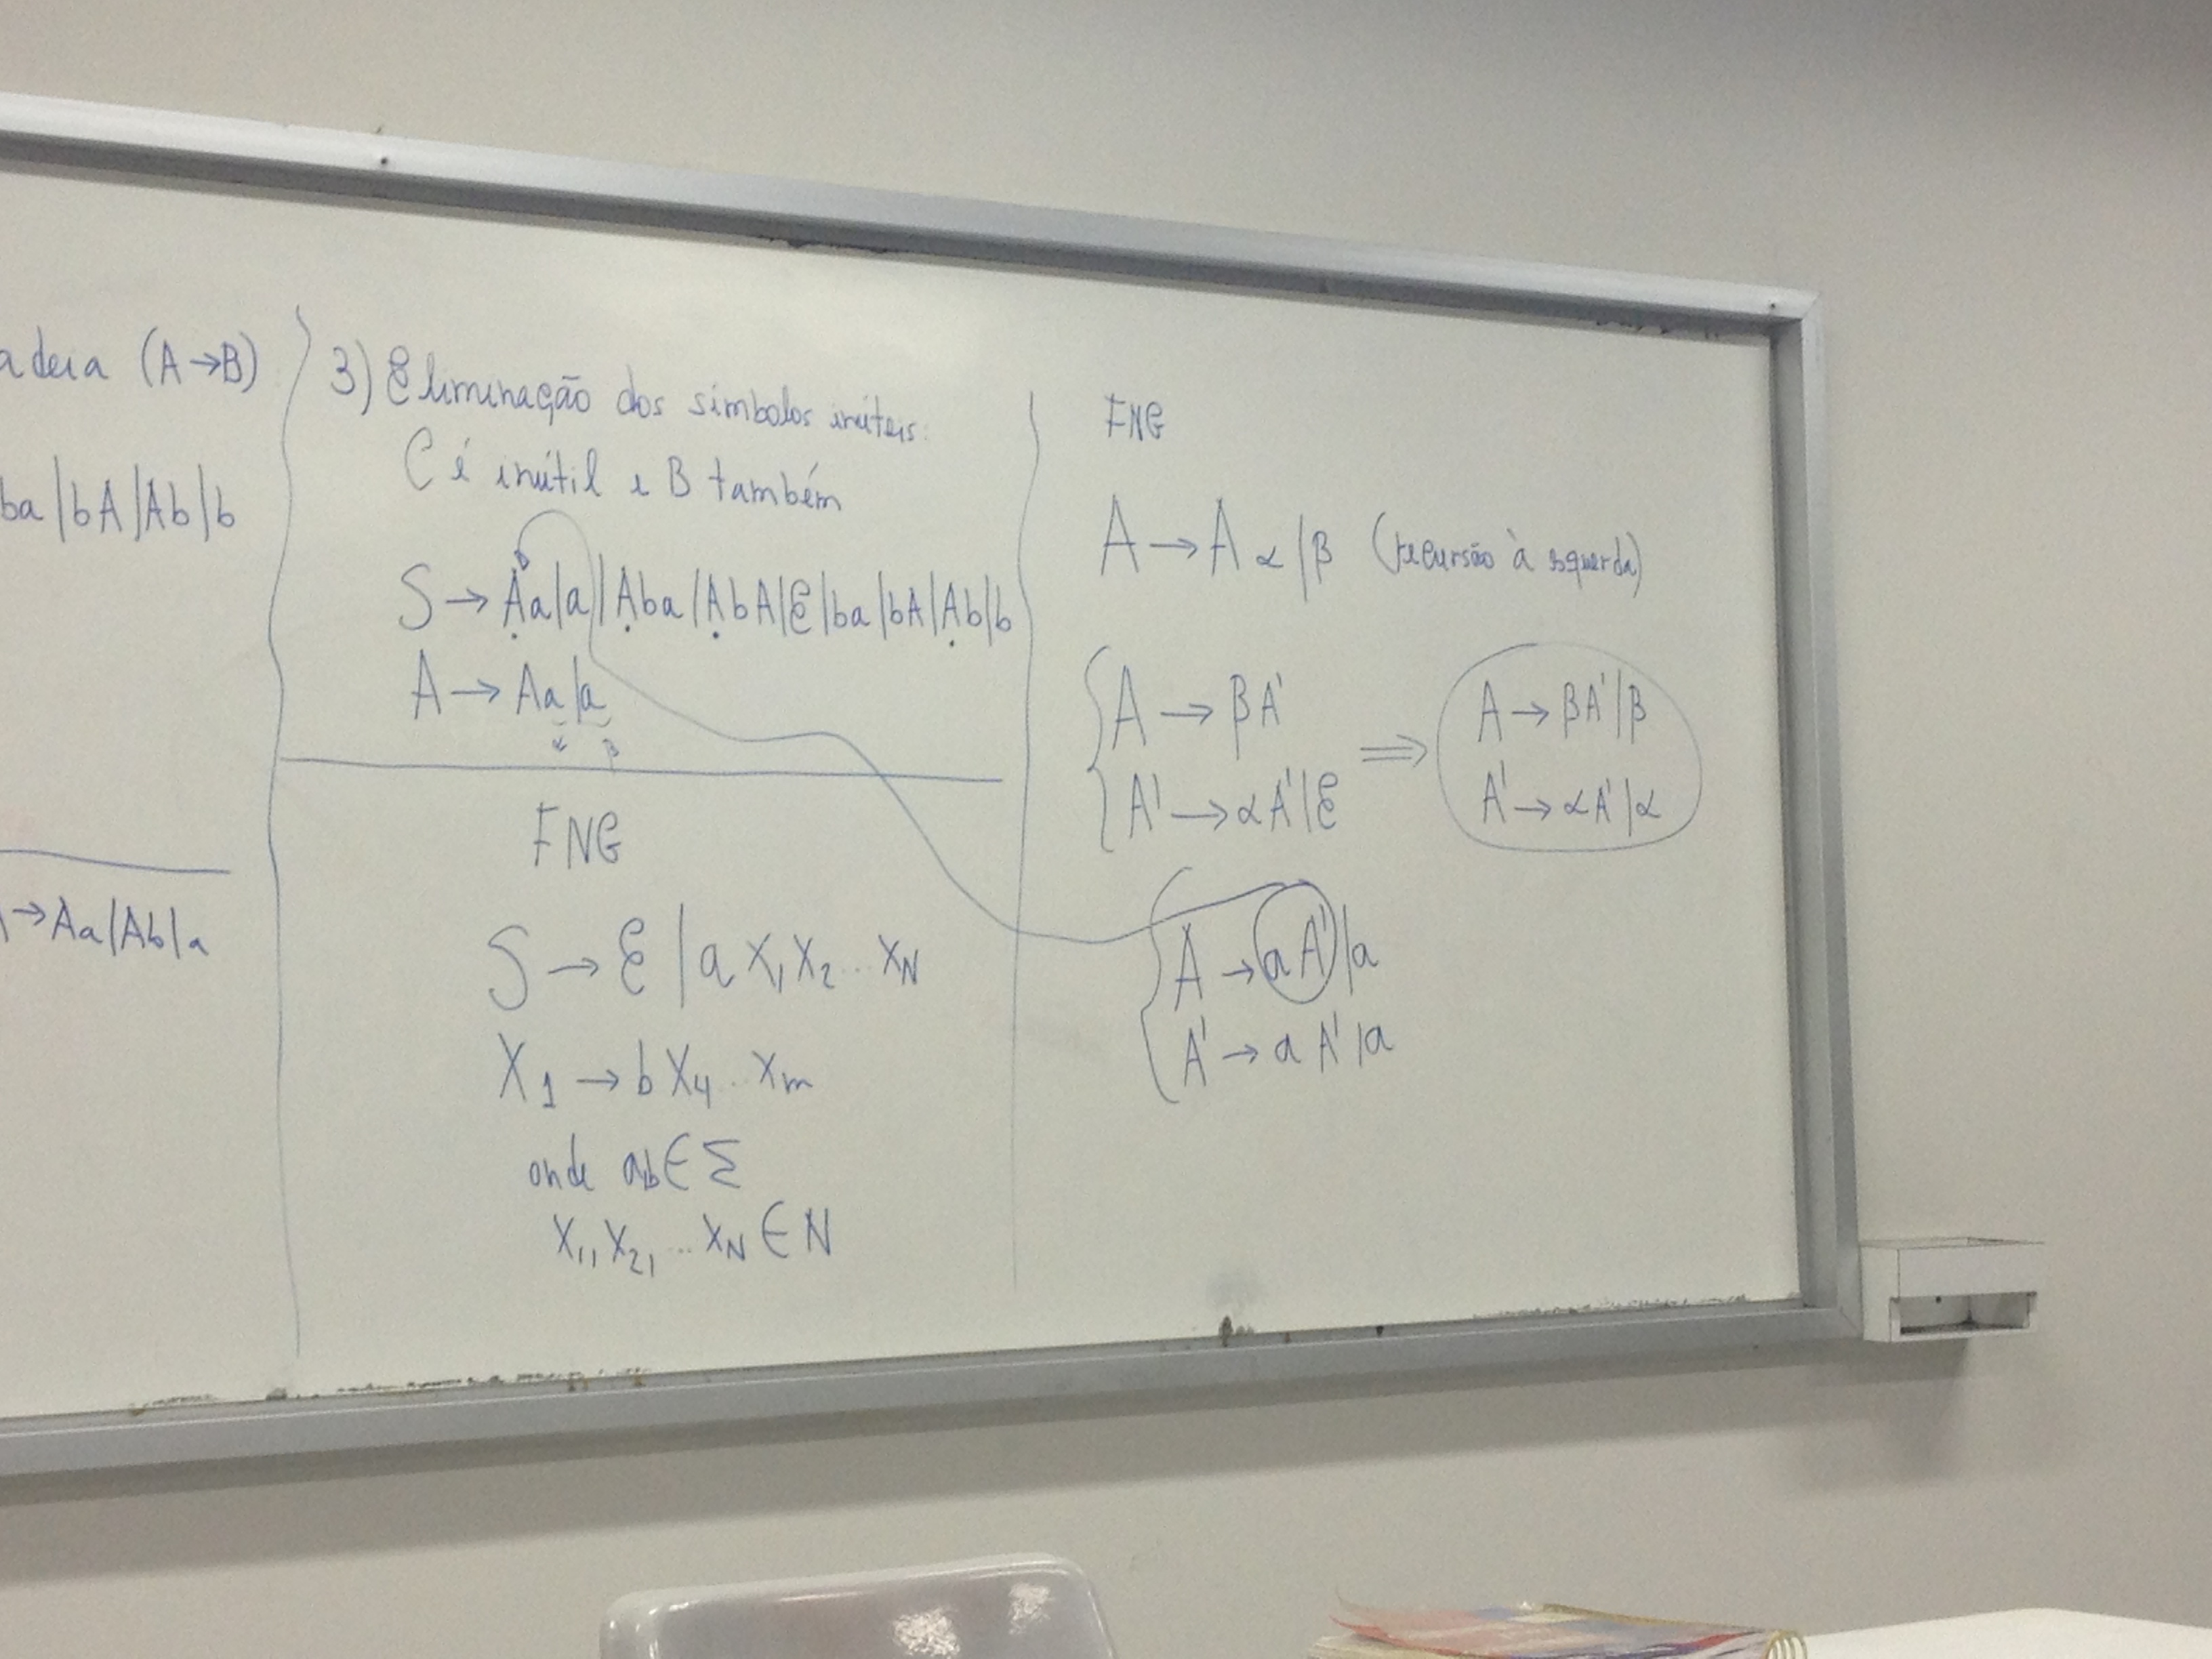 adeia (A→B)
ba|bA|Ab|b
→Aa|Ab|a
3) Eliminação dos símbolos inúteis:
C é inútil e B também
S → Aa|a|Aba|AbA|ε|ba|bA|Ab|b
A → Aa|a
α β
FNG
S → ε | a X₁X₂...X_N
X₁ → b X₄...X_m
onde a,b ∈ Σ
X₁, X₂, ... X_N ∈ N
FNG
A → Aα|β (recursão à esquerda)
A → βA' ⇒ A → βA'|β
A' → αA'|ε A' → αA'|α
A → aA'|a
A' → aA'|a